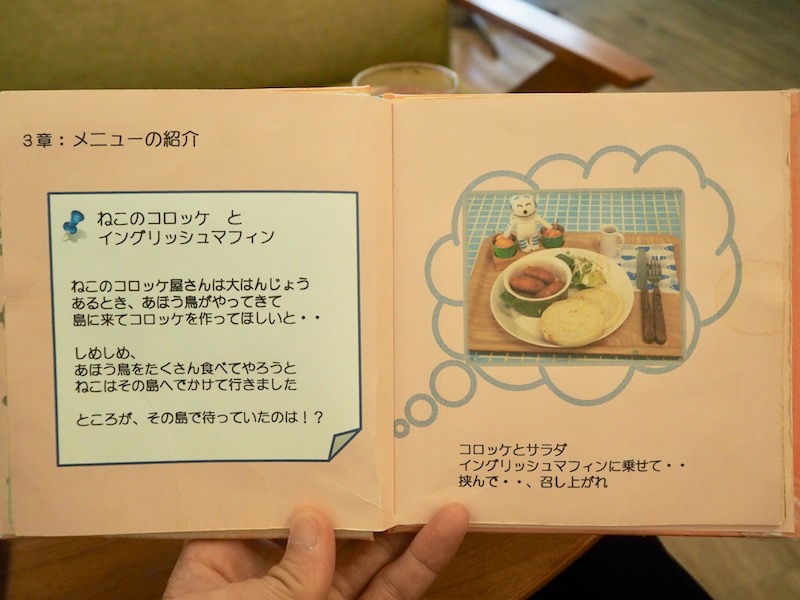 3章：メニューの紹介
ねこのコロッケ　と
イングリッシュマフィン
ねこのコロッケ屋さんは大はんじょう
あるとき、あほう鳥がやってきて
島に来てコロッケを作ってほしいと・・
しめしめ、
あほう鳥をたくさん食べてやろうと
ねこはその島へでかけて行きました
ところが、その島で待っていたのは！？
コロッケとサラダ
イングリッシュマフィンに乗せて・・
挟んで・・、召し上がれ